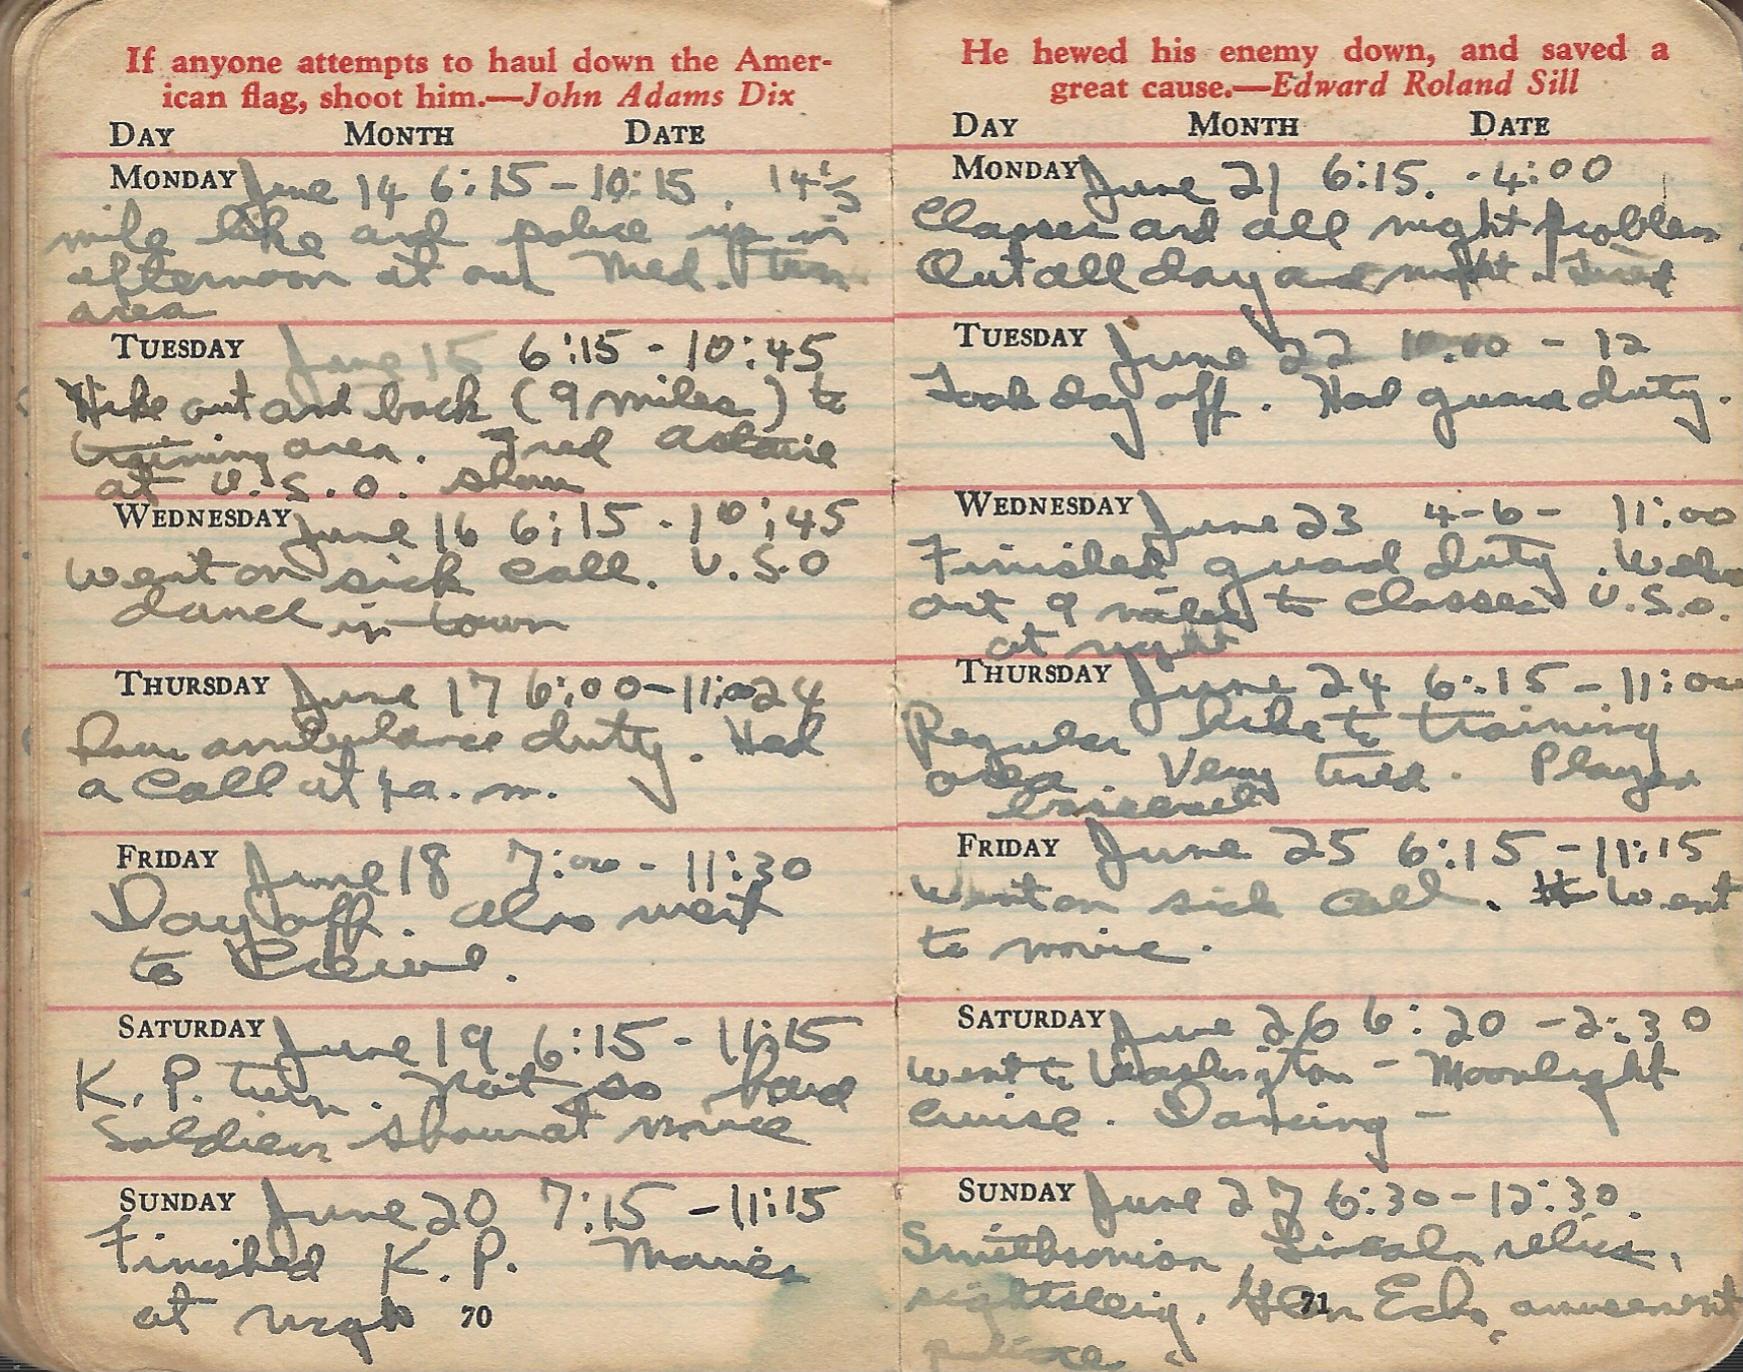 If anyone attempts to haul down the Amer-
ican flag, shoot him.—John Adams Dix
DAY MONTH DATE
MONDAY June 14 6:15 - 10:15. 14
mile hike and police up in
afternoon at our Med. 
area
TUESDAY June 15 6:15 - 10:45
Hike out and back (9 miles) to
training area. Fred Astaire
at U.S.O. show
WEDNESDAY June 16 6:15 - 10:45
Went on sick call. U.S.O
dance in town
THURSDAY June 17 6:00-11:00 24
hour ambulance duty. Had
a call at 4 a.m.
FRIDAY June 18 7:00 - 11:30
Day off. Also went
to
SATURDAY June 19 6:15 - 11:15
K.P. turn. Not so hard
Soldiers show at movie
SUNDAY June 20 7:15 - 11:15
Finished K.P. Movies
at night
70
He hewed his enemy down, and saved a
great cause.—Edward Roland Sill
DAY MONTH DATE
MONDAY June 21 6:15. - 4:00
Classes and all night problem.
Out all day and night. Tired
TUESDAY June 22 10:00 - 12
Took day off. Had guard duty.
WEDNESDAY June 23 4-6- 11:00
Finished guard duty.
out 9 miles to classes U.S.O.
at night
THURSDAY June 24 6:15 - 11:00
Regular hike to training
area Very tired. Played
baseball
FRIDAY June 25 6:15 - 11:15
Went on sick call. Went
to movie.
SATURDAY June 26 6:20 - 2:30
Went to Washington - Moonlight
Cruise. Dancing -
SUNDAY June 27 6:30 - 12:30.
Smithsonian, Lincoln relics,
sightseeing, Glen Echo, amusement
71